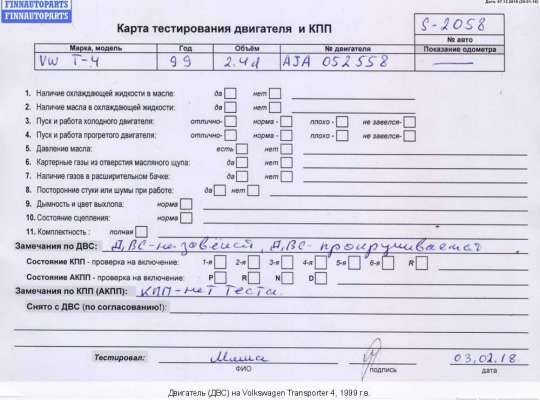 FINNAUTOPARTS
FINNAUTOPARTS
Карта тестирования двигателя и КПП
S-2058
№ авто
Марка, модель Год Объём № двигателя Показание одометра
VW T-4 99 2.4d AJA 052558 —
1. Наличие охлаждающей жидкости в масле: да нет
2. Наличие масла в охлаждающей жидкости: да нет
3. Пуск и работа холодного двигателя: отлично- норма - плохо - не завелся-
4. Пуск и работа прогретого двигателя: отлично- норма - плохо - не завелся-
5. Давление масла: есть нет
6. Картерные газы из отверстия масляного щупа: да нет
7. Наличие газов в расширительном бачке: да нет
8. Посторонние стуки или шумы при работе: да нет
9. Дымность и цвет выхлопа: норма
10. Состояние сцепления: норма
11. Комплектность : полная
Замечания по ДВС: ДВС-не завёлся, ДВС- прокручивается
Состояние КПП - проверка на включение: 1-я 2-я 3-я 4-я 5-я 6-я R
Состояние АКПП - проверка на включение: P R N D
Замечания по КПП (АКПП): КПП-нет теста.
Снято с ДВС (по согласованию!):
Тестировал: Миша 03.02.18
ФИО подпись дата
Двигатель (ДВС) на Volkswagen Transporter 4, 1999 г.в.